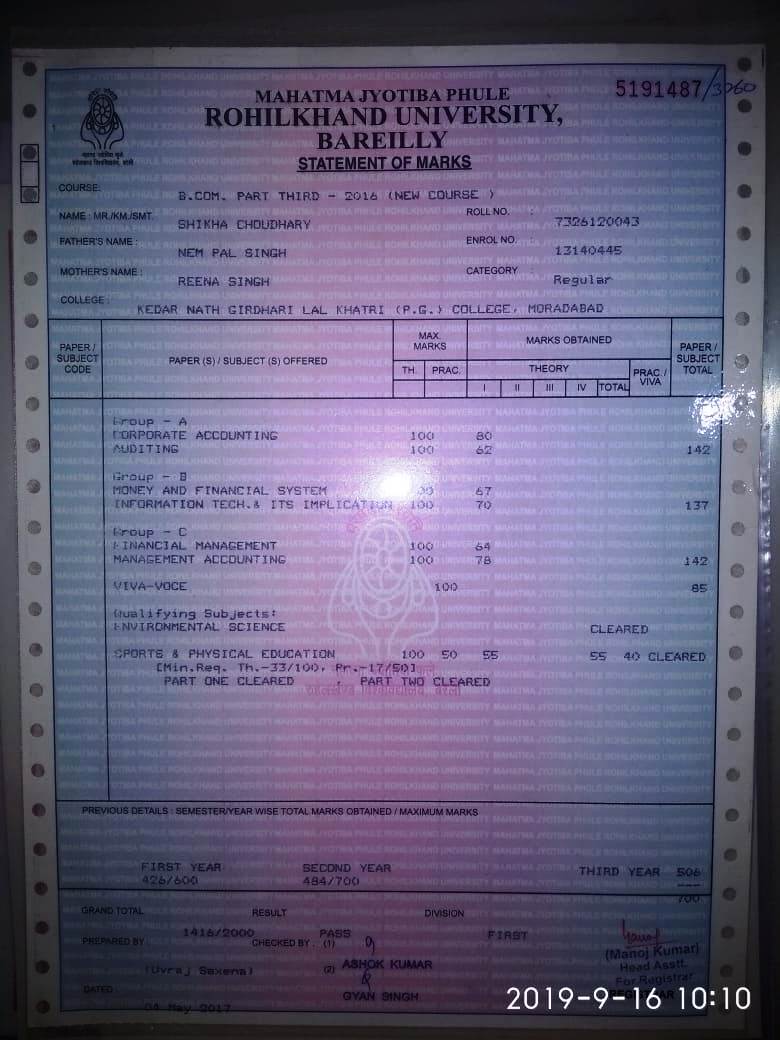 5191487/3060
MAHATMA JYOTIBA PHULE
ROHILKHAND UNIVERSITY,
BAREILLY
STATEMENT OF MARKS
COURSE: B.COM. PART THIRD - 2016 (NEW COURSE )
NAME : MR./KM./SMT. SHIKHA CHOUDHARY ROLL NO. : 7326120043
FATHER'S NAME : NEM PAL SINGH ENROL NO. : 13140445
MOTHER'S NAME : REENA SINGH CATEGORY : Regular
COLLEGE : KEDAR NATH GIRDHARI LAL KHATRI (P.G.) COLLEGE, MORADABAD
PAPER / SUBJECT CODE PAPER (S) / SUBJECT (S) OFFERED MAX. MARKS MARKS OBTAINED PAPER / SUBJECT TOTAL
TH. PRAC. THEORY PRAC. / VIVA
I II III IV TOTAL
Group - A
CORPORATE ACCOUNTING 100 80
AUDITING 100 62 142
Group - B
MONEY AND FINANCIAL SYSTEM 100 67
INFORMATION TECH.& ITS IMPLICATION 100 70 137
Group - C
FINANCIAL MANAGEMENT 100 64
MANAGEMENT ACCOUNTING 100 78 142
VIVA-VOCE 100 85
Qualifying Subjects:
ENVIRONMENTAL SCIENCE CLEARED
SPORTS & PHYSICAL EDUCATION 100 50 55 55 40 CLEARED
[Min.Req. Th.-33/100, Pr.-17/50]
PART ONE CLEARED , PART TWO CLEARED
PREVIOUS DETAILS : SEMESTER/YEAR WISE TOTAL MARKS OBTAINED / MAXIMUM MARKS
FIRST YEAR SECOND YEAR THIRD YEAR 506
426/600 484/700 700
GRAND TOTAL RESULT DIVISION
1416/2000 PASS FIRST
PREPARED BY CHECKED BY : (1)
(Manoj Kumar)
(Uvraj Saxena) (2) ASHOK KUMAR Head Asstt.
For Registrar
DATED GYAN SINGH REGISTRAR
04 May 2017
2019-9-16 10:10